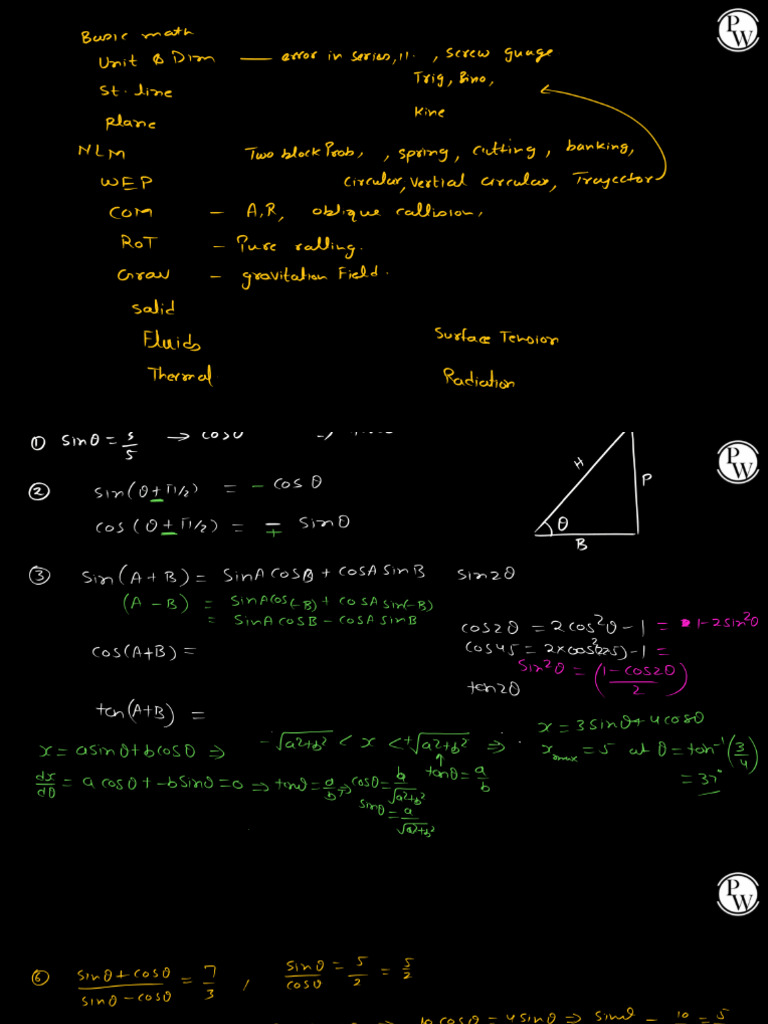 PW
Basic math
Unit & Dim — error in series, 11. , screw guage
St. line Trig, Bino,
Plane Kine
NLM Two block Prob, , spring, cutting, banking,
WEP Circular, Vertial circular, Trajector
COM - A, R, oblique callision,
RoT - Pure ralling.
Grav - gravitation Field.
Salid
Fluids Surface Tension
Thermal Radiation
PW
① sinθ = 3/5 → cosθ ⇒
② sin(θ ± π/2) = - cosθ
cos(θ ± π/2) = ∓ sinθ
H P θ B
③ sin(A+B) = sinA cosB + cosA sinB sin2θ
(A-B) = sinA cos(-B) + cosA sin(-B)
= sinA cosB - cosA sinB
cos2θ = 2cos²θ - 1 = 1 - 2sin²θ
cos(A+B) =
sin²θ = ((1 - cos2θ)/2)
tan2θ
tan(A+B) =
x = 3sinθ + 4cosθ
x = asinθ + bcosθ ⇒ -√(a²+b²) < x < +√(a²+b²) ⇒
x max = 5 at θ = tan⁻¹(3/4)
= 37°
dx/dθ = a cosθ + -b sinθ = 0 ⇒ tanθ = a/b, cosθ = b/√(a²+b²) tanθ = a/b
sinθ = a/√(a²+b²)
PW
⑥ (sinθ + cosθ)/(sinθ - cosθ) = 7/3 , sinθ/cosθ = 5/2 = 5/2
10 cosθ = 4 sinθ ⇒ sinθ = 10 = 5